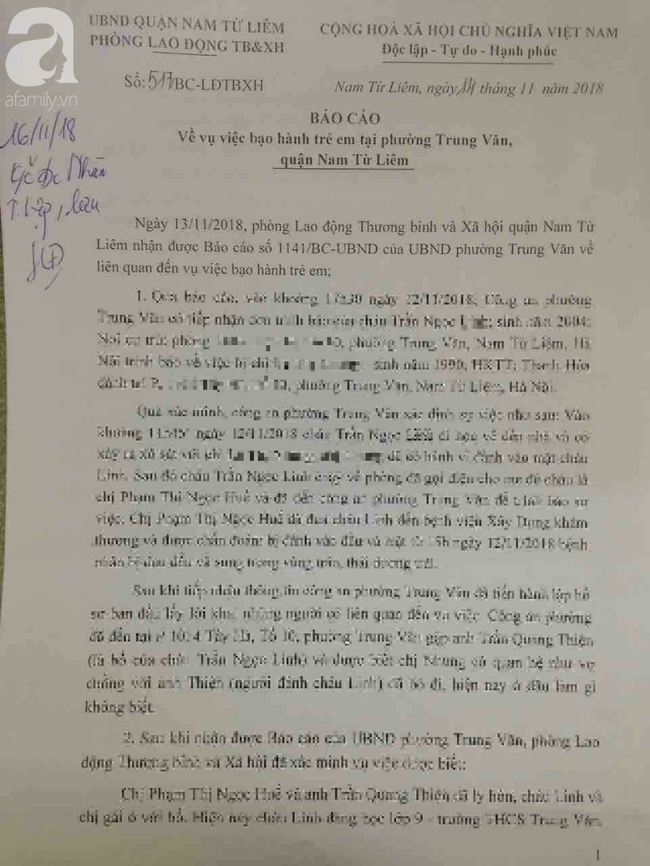 UBND QUẬN NAM TỪ LIÊM
PHÒNG LAO ĐỘNG TB&XH
CỘNG HOÀ XÃ HỘI CHỦ NGHĨA VIỆT NAM
Độc lập - Tự do - Hạnh phúc
Số: 517/BC-LĐTBXH
Nam Từ Liêm, ngày 14 tháng 11 năm 2018
afamily.vn
16/11/18
BÁO CÁO
Về vụ việc bạo hành trẻ em tại phường Trung Văn,
quận Nam Từ Liêm
Ngày 13/11/2018, phòng Lao động Thương binh và Xã hội quận Nam Từ
Liêm nhận được Báo cáo số 1141/BC-UBND của UBND phường Trung Văn về
liên quan đến vụ việc bạo hành trẻ em;
1. Qua báo cáo, vào khoảng 17h30 ngày 12/11/2018, Công an phường
Trung Văn có tiếp nhận đơn trình báo của cháu Trần Ngọc Linh; sinh năm 2004;
Nơi cư trú: phòng phường Trung Văn, Nam Từ Liêm, Hà
Nội trình báo về việc bị chị sinh năm 1990, HKTT: Thanh Hóa
đánh tại P. phường Trung Văn, Nam Từ Liêm, Hà Nội.
Qua xác minh, công an phường Trung Văn xác định sự việc như sau: Vào
khoảng 11h45' ngày 12/11/2018 cháu Trần Ngọc Linh đi học về đến nhà và có
xảy ra xô sát với chị đã có hành vi đánh vào mặt cháu
Linh. Sau đó cháu Trần Ngọc Linh chạy về phòng đã gọi điện cho mẹ đẻ cháu là
chị Phạm Thị Ngọc Huế và đã đến công an phường Trung Văn để trình báo sự
việc. Chị Phạm Thị Ngọc Huế đã đưa cháu Linh đến bệnh viện Xây Dựng khám
thương và được chẩn đoán: bị đánh vào đầu và mặt từ 15h ngày 12/11/2018 bệnh
nhân bị đau đầu và sưng trong vùng trán, thái dương trái.
Sau khi tiếp nhận thông tin công an phường Trung Văn đã tiến hành lập hồ
sơ ban đầu lấy lời khai những người có liên quan đến vụ việc. Công an phường
đã đến tại P 1014 Tây Hà, Tổ 10, phường Trung Văn gặp anh Trần Quang Thiện
(là bố của cháu Trần Ngọc Linh) và được biết chị Nhung có quan hệ như vợ
chồng với anh Thiện (người đánh cháu Linh) đã bỏ đi, hiện nay ở đâu làm gì
không biết.
2. Sau khi nhận được Báo cáo của UBND phường Trung Văn, phòng Lao
động Thương binh và Xã hội đã xác minh vụ việc được biết:
Chị Phạm Thị Ngọc Huế và anh Trần Quang Thiện đã ly hôn, cháu Linh và
chị gái ở với bố. Hiện nay cháu Linh đang học lớp 9 - trường THCS Trung Văn.
1